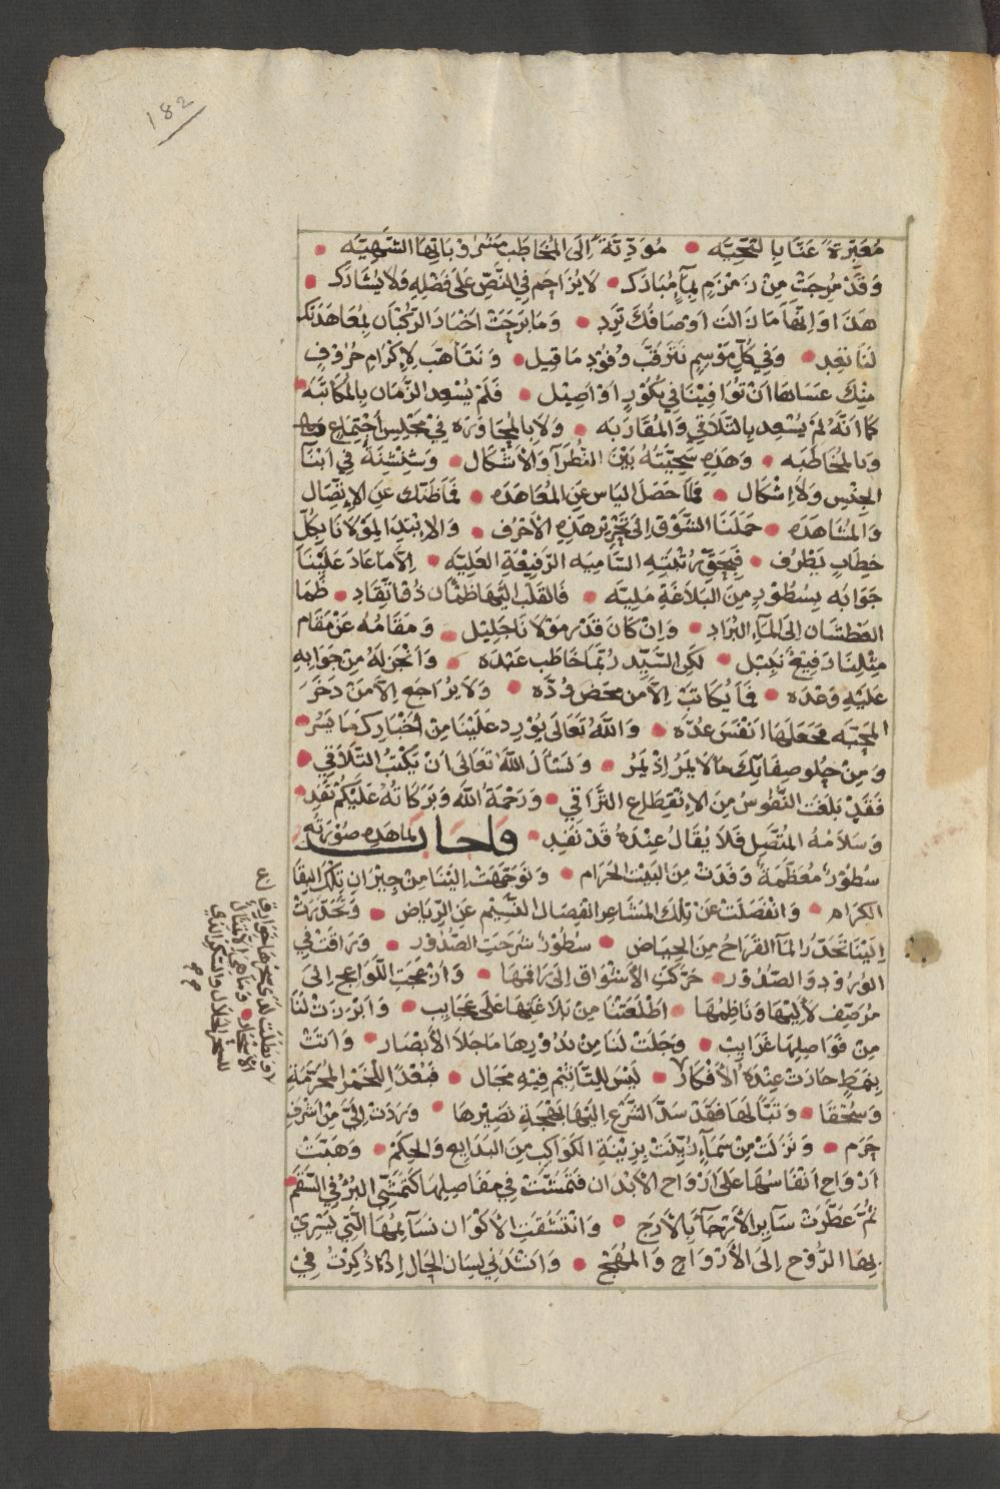 182
مُعَبِّرَةً عَنَّا بِالتَّحِيَّه • مُوَدِّيَةً اِلَى المُخَاطَب مَشْرُوْبَاتِهَا الشَّهِيَّه •
وَقَدْ مُزِجَتْ مِنْ زَمْزَمٍ بِمَآءٍ مُبَارَك • لَا يُزَاحَم فِي النَّصِّ عَلَى فَضْلِهِ وَلَا يُشَارَك •
هَذَا وَاِنَّهَا مَا زَالَت اَوْصَافُكَ تَرِد • وَمَا بَرَحَتْ اَخْبَار الرُّكْبَان بِمُعَاهَدَتِكَ
لَنَا تَعِد • وَفِي كُلِّ مَوْسِمٍ نَتَرَقَّب وُفُوْد مَا قِيل • وَنَتَاهَّب لِإِكْرَامِ حُرُوْفٍ
مِنْكَ عَسَاهَا اَنْ تُوَافِيْنَا فِي بُكُوْرٍ اَوْ اَصِيْل • فَلَمْ يُسْعِد الزَّمَان بِالْمُكَاتَبَه •
كَمَا اَنَّهُ لَمْ يُسْعِد بِالتَّلَاقِي وَالمُقَارَبَه • وَلَا بِالمُحَاوَرَه فِيْ مَجْلِسِ اجْتِمَاعٍ
وَبِالمُخَاطَبَه • وَهَذِهِ سَجِيَّتُهُ بَيْنَ النُّظَرَآ وَالْأَشْكَال • وَشِنْشِنَةٌ فِي اَبْنَآ
الجِنْسِ وَلَا اِشْكَال • فَلَمَّا حَصَلَ اليَاس عَنِ المُعَاهَدَه • عَنِ الإتِّصَال
وَالمُشَاهَدَه • حَمَلَنَا الشَّوْق اِلَى تَحْرِيْرِ هَذِهِ الْأَحْرُف • وَالإبْتِدَا لِمَوْلَانَا بِكُلِّ
خِطَابٍ يَظْرُف • فَبِحَقِّ رُتْبَتِهِ السَّامِيَه الرَّفِيْعَةِ العَلِيَّه • اِلَّا مَا عَادَ عَلَيْنَا
جَوَابُه بِسُطُوْرٍ مِنَ البَلَاغَةِ مَلِيَّه • فَالقَلْب اِلَيْهَا ظَمْآن ذُوْ اتِّقَاد • ظَمَا
العَطْشَان اِلَى المَآءِ البُرَاد • وَاِنْ كَانَ قَدْر مَوْلَانَا جَلِيْل • وَمَقَامُهُ عَنْ مَقَام
مِثْلِنَا رَفِيعٌ نَبِيْل • لَكِن السَّيِّد رُبَّمَا خَاطَب عَبْدَه • وَاَنْجَزَ لَهُ مِنْ جَوَابِهِ
عَلَيْهِ وَعْدَه • فَمَا يُكَاتَبُ اِلَّا مَن مَحَض وُدَّه • وَلَا يُرَاجَع اِلَّا مَنْ دَخَرَ
المَحَبَّه فَجَعَلَهَا اَنْفَسَ عُدَّه • وَاللَّهُ تَعَالَى يُوْرِد عَلَيْنَا مِنْ اَخْبَارِكَ مَا يَسُر •
وَمِنْ حُلْوِ صِفَاتِكَ مَا لَا يَمُر اِذْ يَمُر • وَنَسْأَل اللَّهَ تَعَالَى اَنْ يَكْتُب التَّلَاقِي •
فَقَدْ بَلَغَت النُّفُوسُ مِنَ الإنْقِطَاعِ التَّرَاقِي • وَرَحْمَةُ اللَّه وَبَرَكَاتُهُ عَلَيْكُم تَفِد •
وَسَلَامُهُ المُتَّصِل فَلَا يُقَالُ عِنْدَهُ قَدْ نَفِد • فاجاب بِمَا هَذِهِ صُوْرَتُهُ
سُطُوْرٌ مُعَظَّمَةٌ وَفَدَتْ مِنَ البَيْت الحَرَام • وَتَوَجَّهَت اِلَيْنَا مِنْ جِيْرَانِ تِلْكَ البِقَاعِ
الكِرَام • وَانْفَصَلَتْ عَنْ تِلْكَ المَشَاعِر انْفِصَالَ النَّسِيْم عَنِ الرِّيَاض • وَتَحَدَّرَتْ
اِلَيْنَا تَحَدُّر المَآ القَرَاح مِنَ الحِيَاض • سُطُوْرٌ شَرَحَت الصُّدُوْر • وَرَاقَتْ فِي
الوُرُوْدِ وَالصُّدُوْر • حَرَّكَت الأَشْوَاق اِلَى رَاقِمِهَا • وَاَزْعَجَت اللَّوَاعِج اِلَى
مُرَصِّف لَآلِيْهَا وَنَاظِمِهَا • اَطْلَعَتْنَا مِنْ بَلَاغَتِهَا عَلَى عَجَايِب • وَاَبْرَزَتْ لَنَا
مِنْ فَوَاصِلِهَا غَرَايِب • وَجَلَتْ لَنَا مِنْ بُدُوْرِهَا مَا جَلَا الْأَبْصَار • وَاَتَتْ
بِنَمَطٍ حَارَتْ عِنْدَهُ الْأَفْكَار • لَيْسَ لِلتَّأْثِيْم فِيْهِ مَجَال • فَبُعْدًا لِلْخَمْرِ المُحَرَّمَةِ
وَسُحْقًا • وَتَبًّا لَهَا فَقَدْ سَدَّ الشَّرْع وَرَدَتْ اِلَيَّ مِنْ اَشْرَفِ
حَرَم • وَنَزَلَتْ مِنْ سَمَآءٍ زُيِّنَتْ بِزِيْنَةِ الكَوَاكِب مِنَ البَدَايِع وَالحِكَم • وَهَبَّتْ
اَرْوَاح اَنْفَاسِهَا عَلَى اَرْوَاح الأَبْدَان فَتَمَشَّتْ فِي مَفَاصِلِهَا كَتَمَشِّي البُرْءِ فِي السَّقَم •
ثُمَّ عَطَّرَتْ سَآيِر الأَرْجَآءِ بِالْأَرَج • وَانْتَشَقَت الأَكْوَان نَسَآيِمَهَا الَّتِي يَسْرِيْ
بِهَا الرُّوْح اِلَى الْأَرْوَاحِ وَالمُهَج • وَاَنْشَدَنِي لِسَان الحَال اِذْ كَا ذُكِرَتْ فِيْ